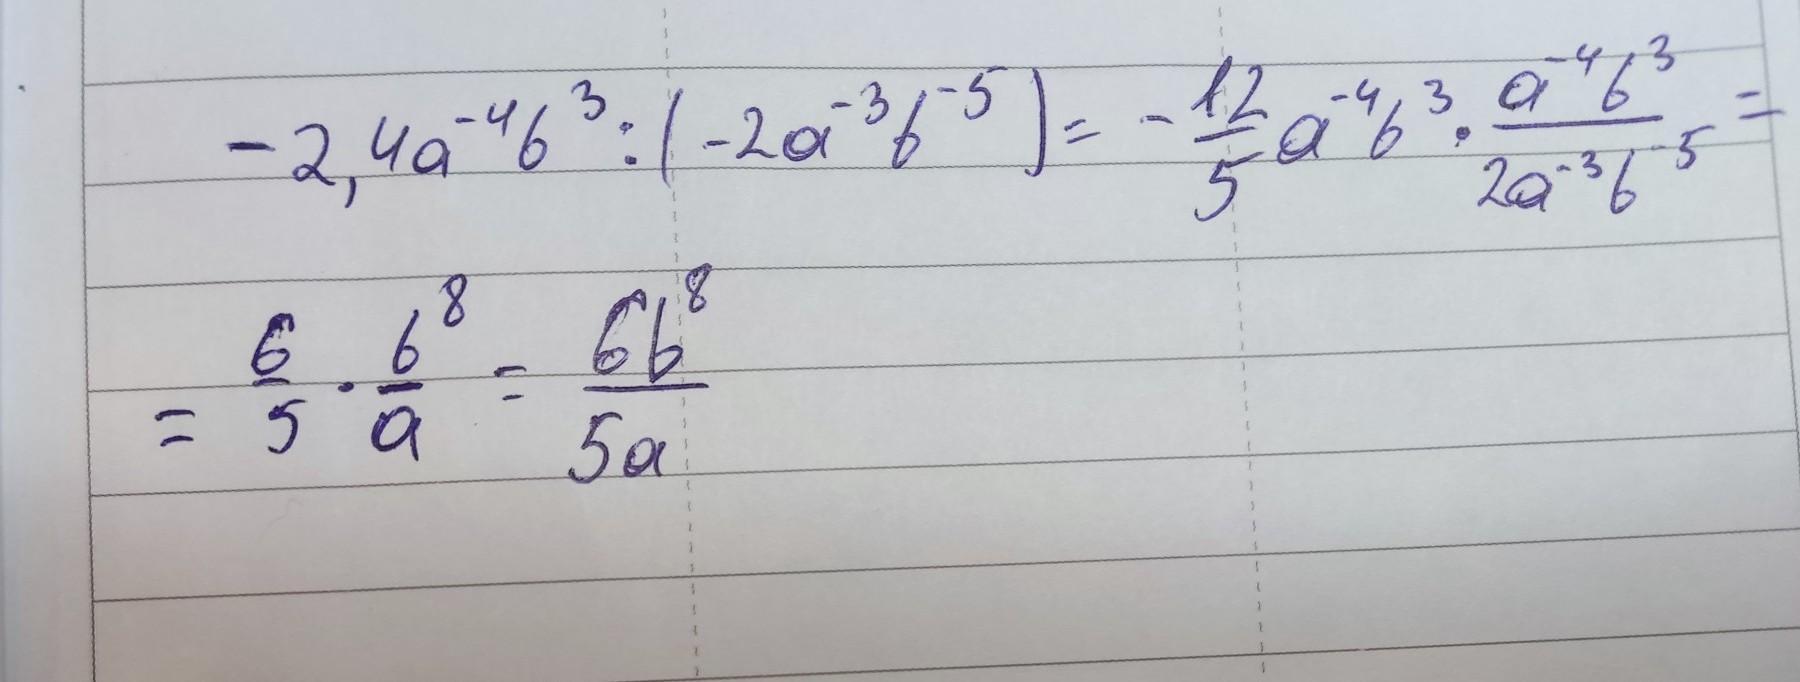 -2,4a⁻⁴b³:(-2a⁻³b⁻⁵)= -12/5 a⁻⁴b³ · a⁻⁴b³/2a⁻³b⁻⁵ =
= 6/5 · b⁸/a = 6b⁸/5a